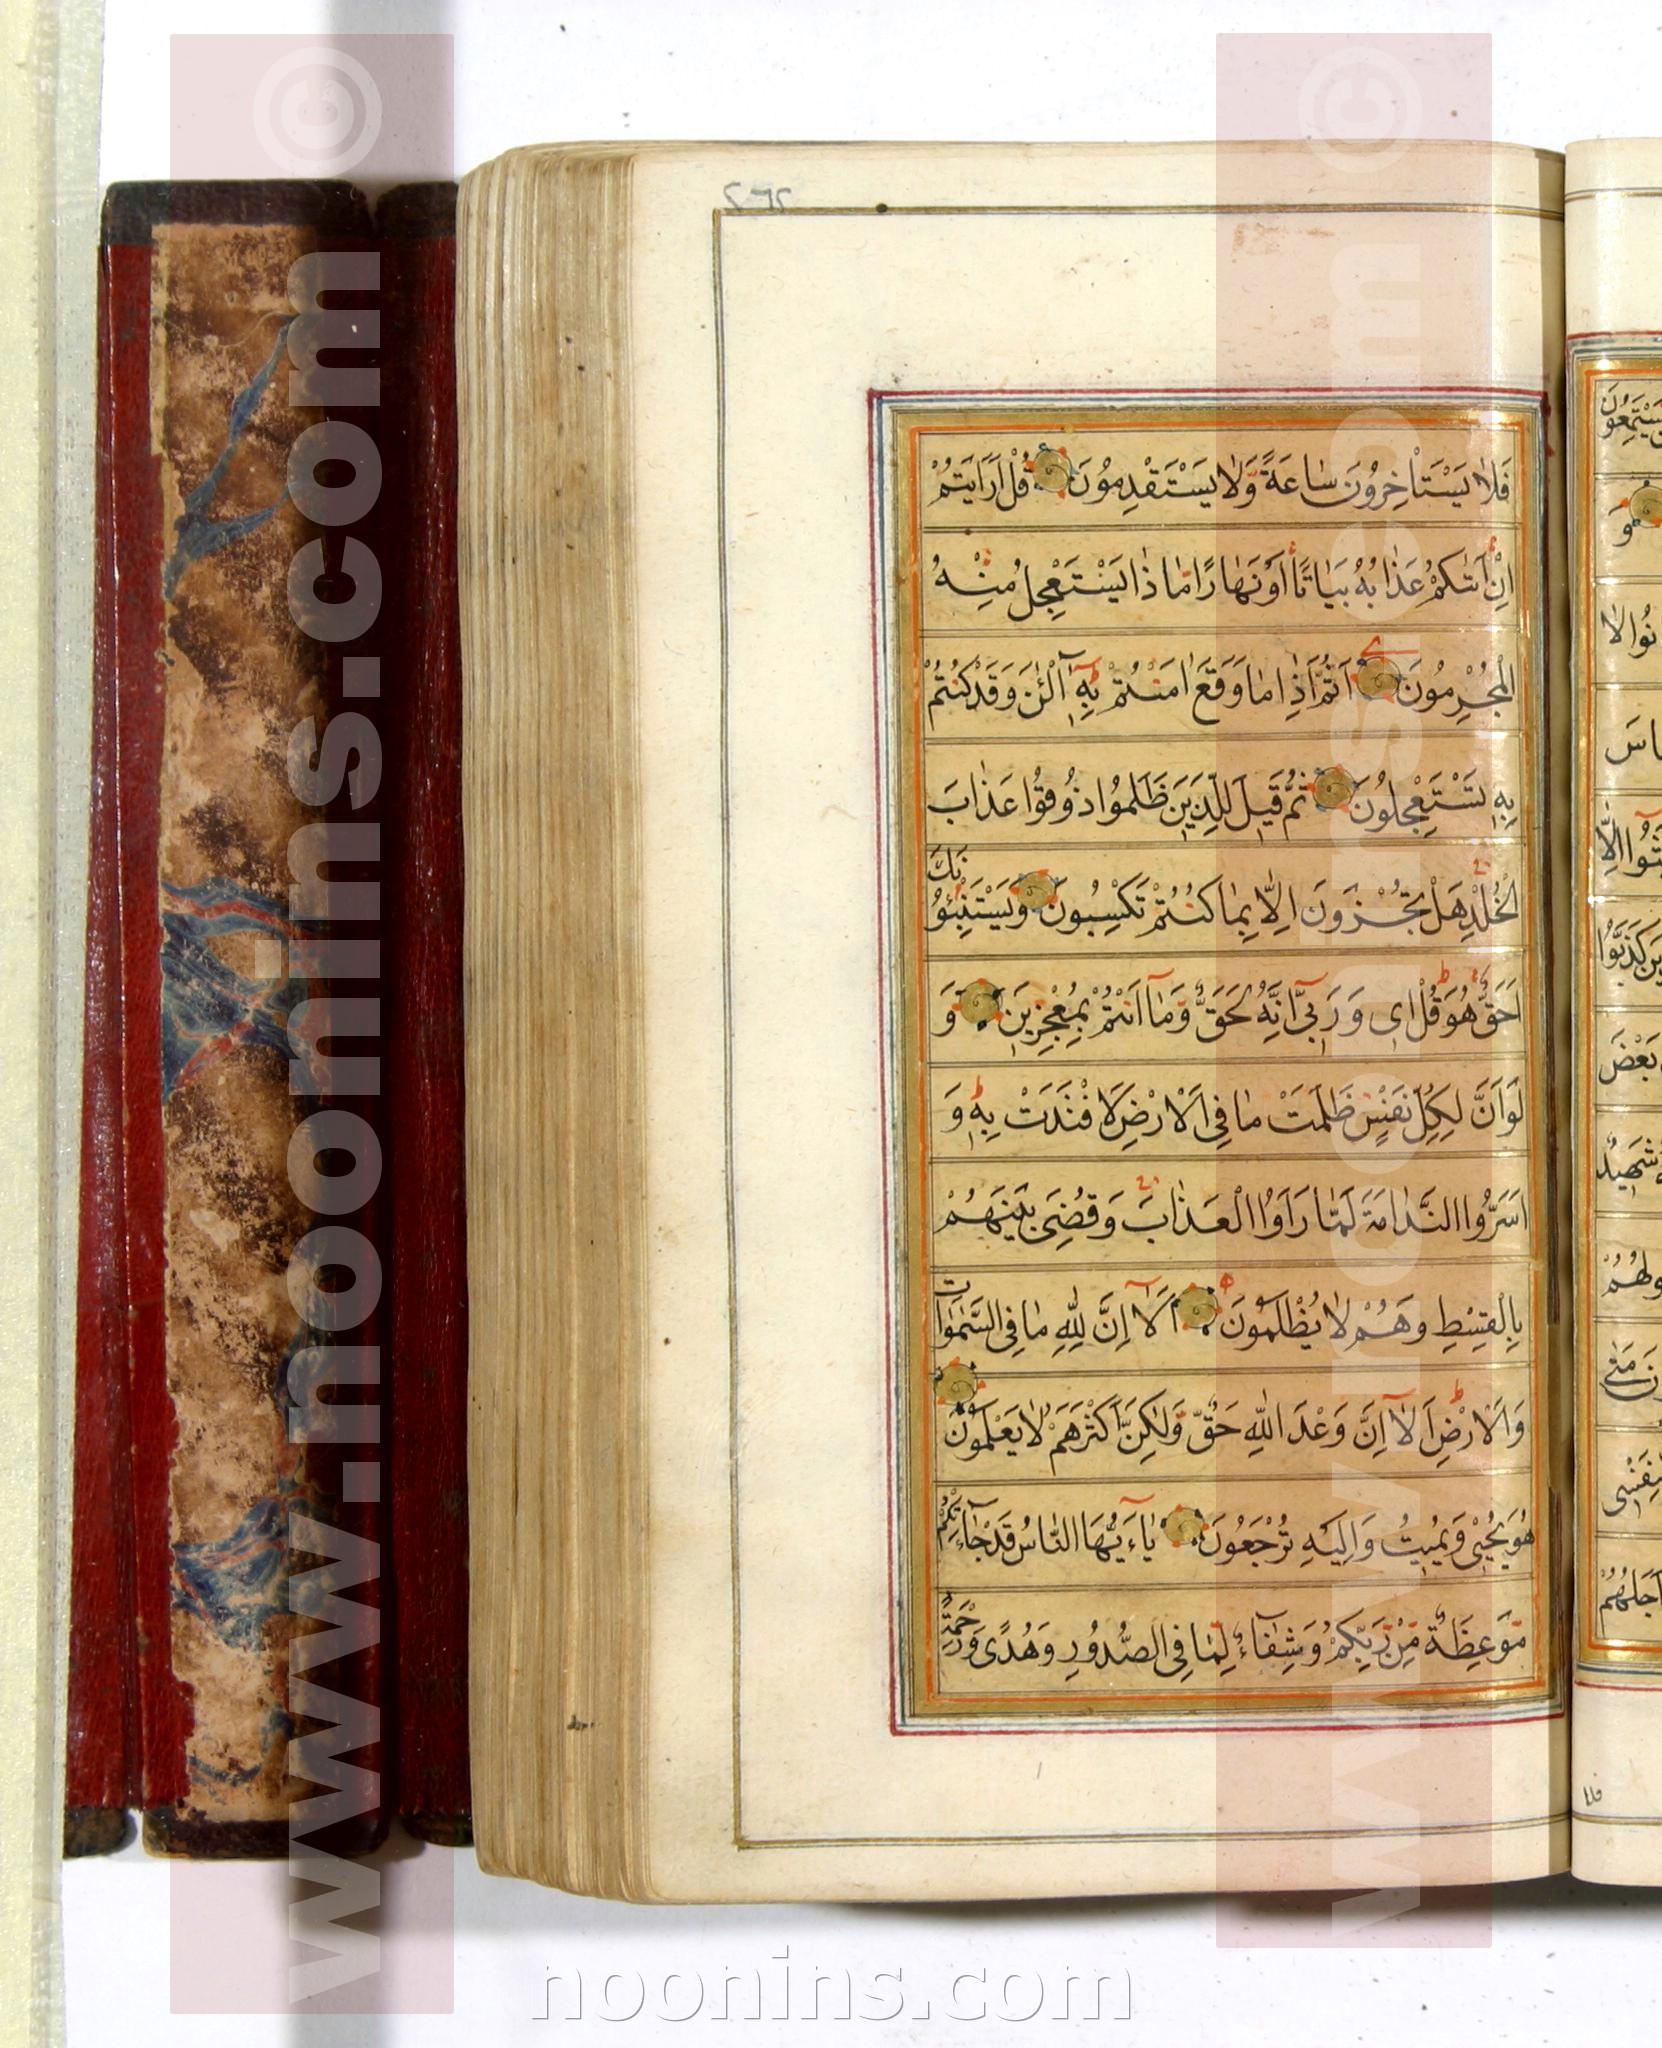 فَلَا يَسْتَأْخِرُونَ سَاعَةً وَلَا يَسْتَقْدِمُونَ قُلْ أَرَأَيْتُمْ
إِنْ أَتَىٰكُمْ عَذَابُهُ بَيَاتًا أَوْ نَهَارًا مَاذَا يَسْتَعْجِلُ مِنْهُ
الْمُجْرِمُونَ أَثُمَّ إِذَا مَا وَقَعَ اٰمَنْتُمْ بِهِ آلْئٰنَ وَقَدْ كُنْتُمْ
بِهِ تَسْتَعْجِلُونَ ثُمَّ قِيلَ لِلَّذِينَ ظَلَمُوا ذُوقُوا عَذَابَ
الْخُلْدِ هَلْ تُجْزَوْنَ إِلَّا بِمَا كُنْتُمْ تَكْسِبُونَ وَيَسْتَنْبِئُونَكَ
أَحَقٌّ هُوَ قُلْ إِي وَرَبِّي إِنَّهُ لَحَقٌّ وَمَا أَنْتُمْ بِمُعْجِزِينَ وَ
لَوْ أَنَّ لِكُلِّ نَفْسٍ ظَلَمَتْ مَا فِي الْأَرْضِ لَافْتَدَتْ بِهِ وَ
أَسَرُّوا النَّدَامَةَ لَمَّا رَأَوُا الْعَذَابَ وَقُضِيَ بَيْنَهُمْ
بِالْقِسْطِ وَهُمْ لَا يُظْلَمُونَ أَلَا إِنَّ لِلَّهِ مَا فِي السَّمٰوَاتِ
وَالْأَرْضِ أَلَا إِنَّ وَعْدَ اللَّهِ حَقٌّ وَلٰكِنَّ أَكْثَرَهُمْ لَا يَعْلَمُونَ
هُوَ يُحْيِي وَيُمِيتُ وَإِلَيْهِ تُرْجَعُونَ يَاءَيُّهَا النَّاسُ قَدْ جَاءَتْكُمْ
مَوْعِظَةٌ مِنْ رَبِّكُمْ وَشِفَاءٌ لِمَا فِي الصُّدُورِ وَهُدًى وَرَحْمَةٌ
يَسْتَمِعُونَ
وَ
نُوا لَا
كَذَّبُوا
بَعْضَ
شَهِيدٌ
مَتٰى
لِنَفْسِي
أَجَلُهُمْ
فلا
www.noonins.com ©
www.noonins.com ©
noonins.com